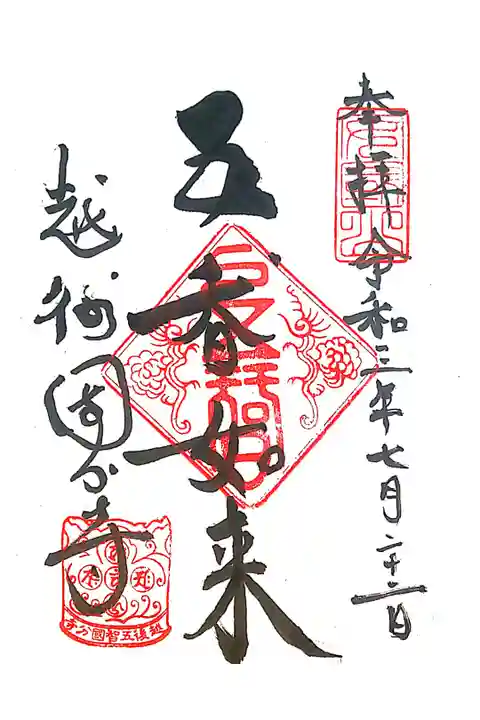 奉拝 令和三年七月二十二日
五智如来
越後國分寺
越後五智國分寺